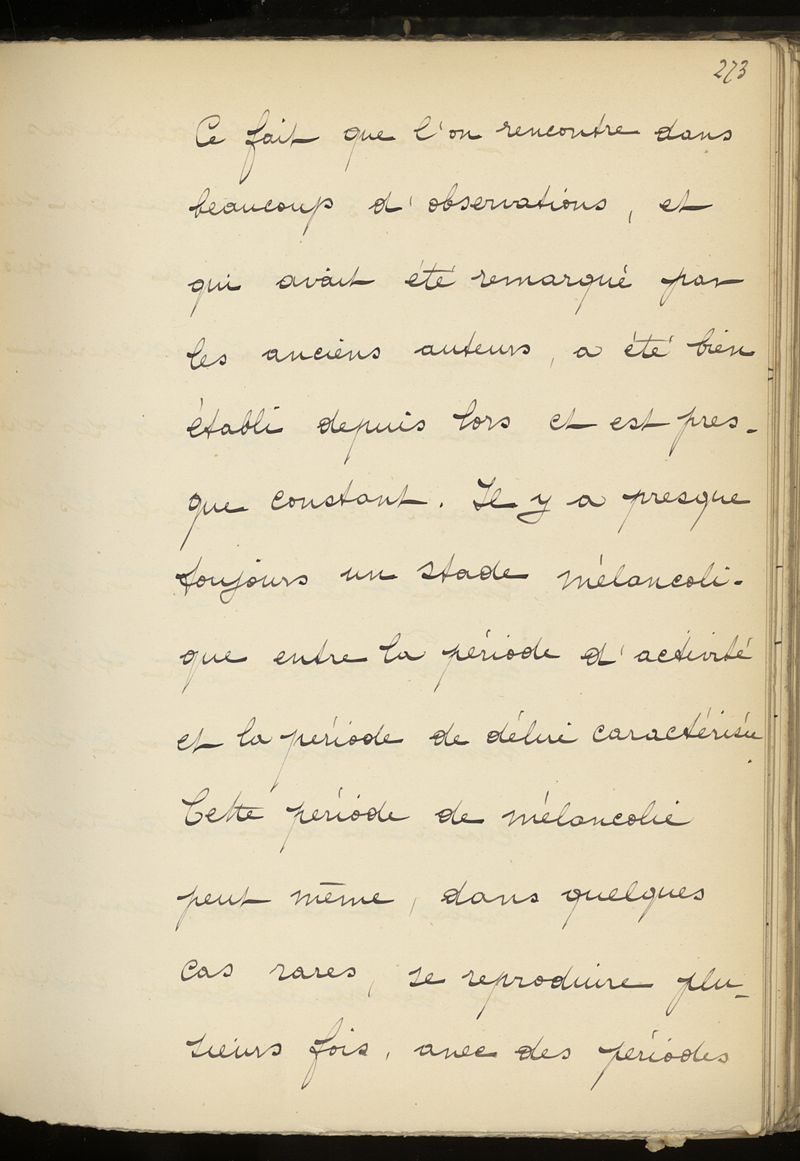 273
Ce fait que l'on rencontre dans
beaucoup d'observations, et
qui avait été remarqué par
les anciens auteurs, a été bien
établi depuis lors et est pres-
que constant. Il y a presque
toujours un stade mélancoli-
que entre la période d'activité
et la période de délire caractérisée.
Cette période de mélancolie
peut même, dans quelques
cas rares, se reproduire plu-
sieurs fois, avec des périodes